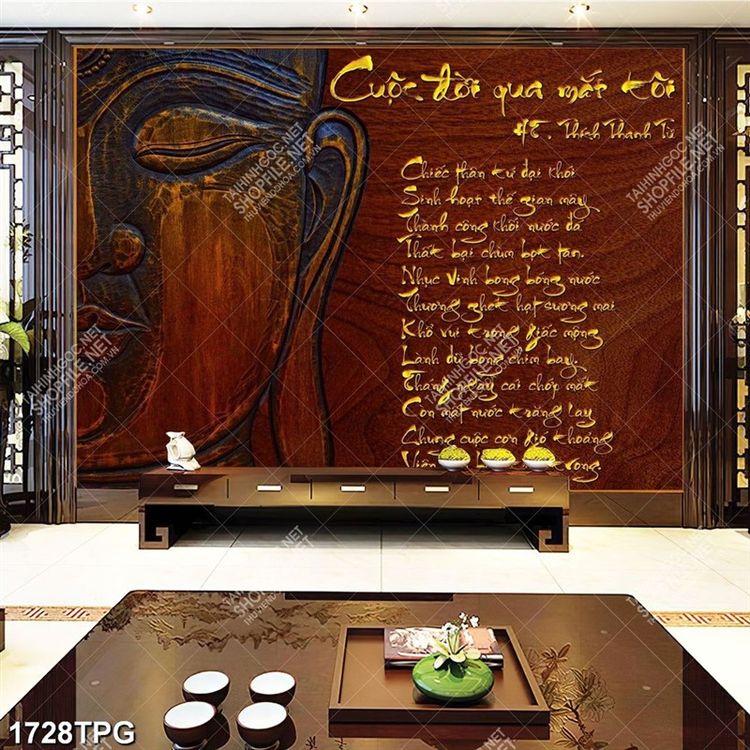 Cuộc đời qua mắt tôi
HT. Thích Thanh Từ
Chiếc thân tứ đại khối
Sinh hoạt thế gian này
Thành công khối nước đá
Thất bại chùm bọt tan.
Nhục Vinh bong bóng nước
Thương ghét hạt sương mai
Khổ vui trong giấc mộng
Lành dữ bóng chim bay.
Tháng ngày cái chớp mắt
Còn mất nước trăng lay
Chung cuộc cơn gió thoảng
TAIHINHGOC.NET
SHOPFILE.NET
THUVIENDOHOA.COM.VN
1728TPG